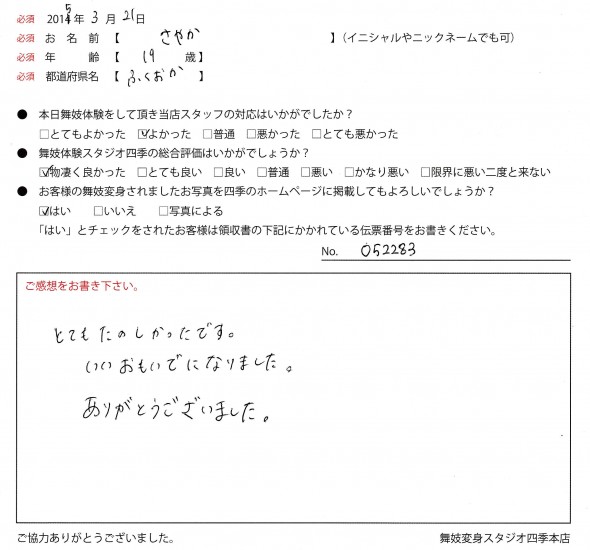 必須 2015年 3 月 21日
必須 お 名 前 【 さやか 】（イニシャルやニックネームでも可）
必須 年 齢 【 19 歳】
必須 都道府県名 【 ふくおか 】
● 本日舞妓体験をして頂き当店スタッフの対応はいかがでしたか？
□とてもよかった ☑よかった □普通 □悪かった □とても悪かった
● 舞妓体験スタジオ四季の総合評価はいかがでしょうか？
☑物凄く良かった □とても良い □良い □普通 □悪い □かなり悪い □限界に悪い二度と来ない
● お客様の舞妓変身されましたお写真を四季のホームページに掲載してもよろしいでしょうか？
☑はい □いいえ □写真による
「はい」とチェックをされたお客様は領収書の下記にかかれている伝票番号をお書きください。
No. 052283
ご感想をお書き下さい。
とてもたのしかったです。
いいおもいでになりました。
ありがとうございました。
ご協力ありがとうございました。 舞妓変身スタジオ四季本店